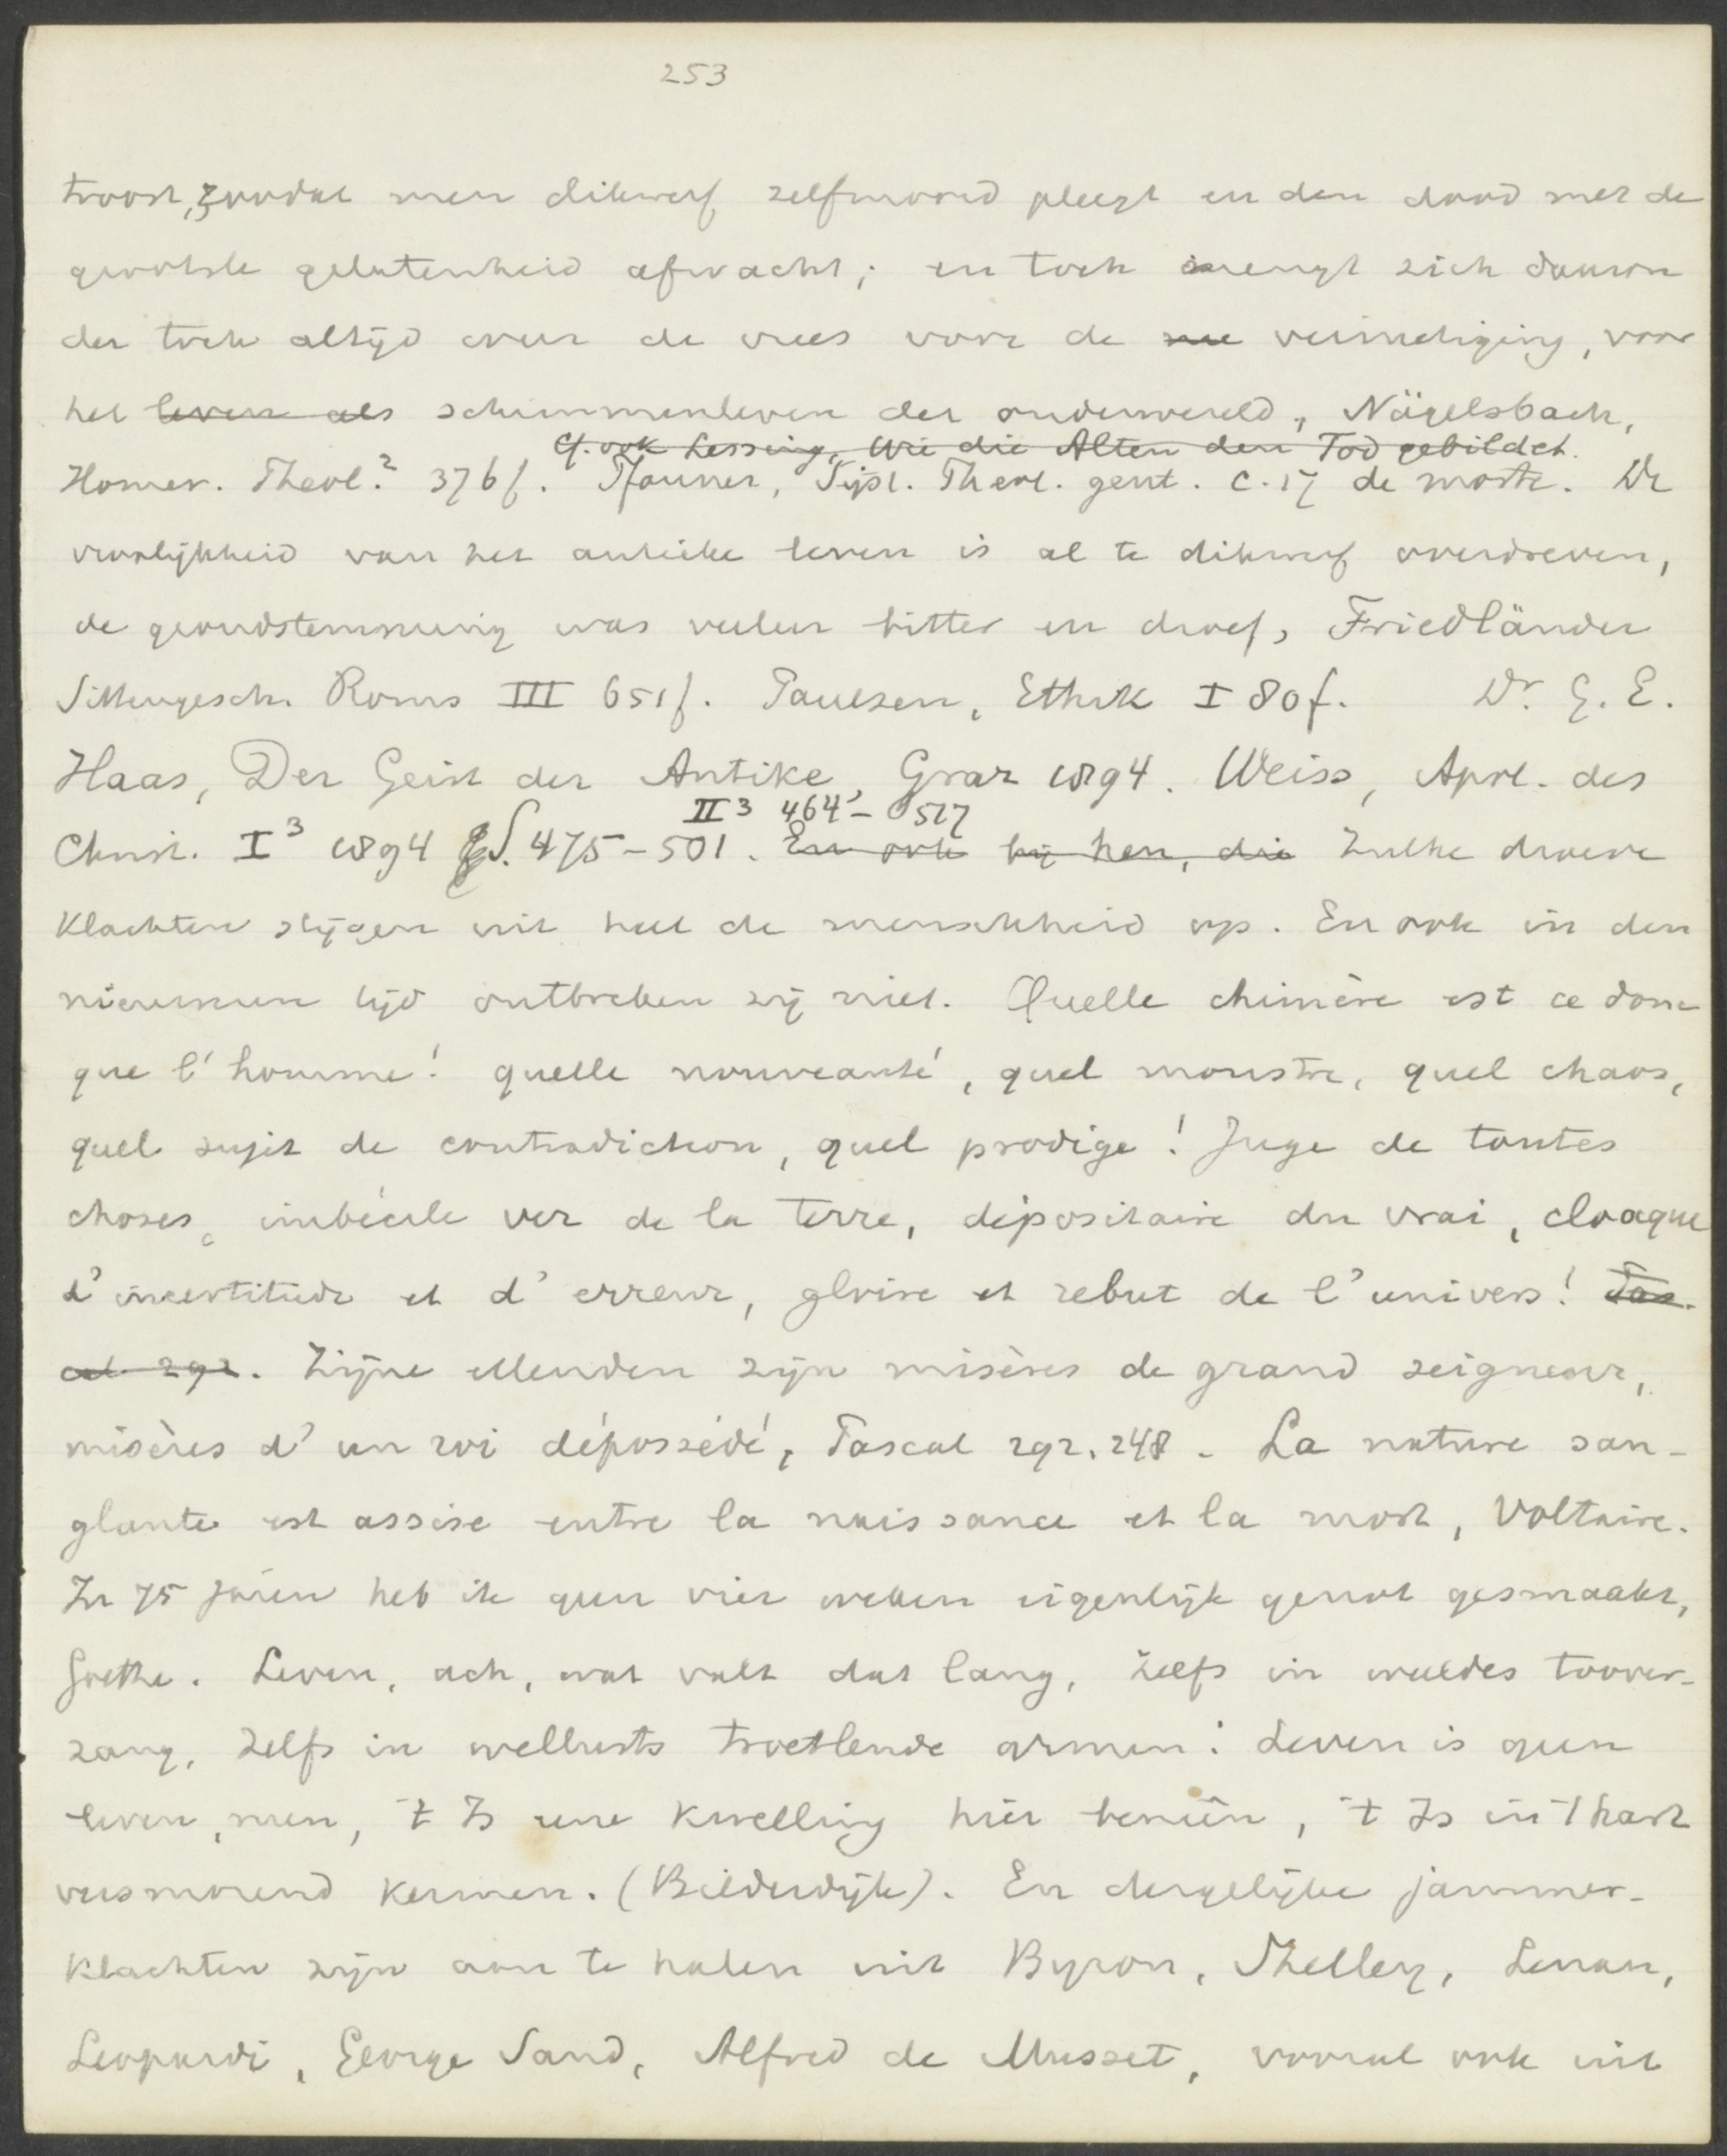 253
troost, zoodat men dikwerf zelfmoord pleegt en den dood met de
grootste gelatenheid afwacht; en toch mengt zich daaron
der toch altijd weer de vrees voor de nee vernietiging, voor
het leven als schimmenleven der onderwereld, Nägelsbach,
Cf. ook Lessing, Wie die Alten den Tod gebildet.
Homer. Theol.² 376f. Pfanner, Syst. Theol. gent. c. 17 de morte. De
vroolijkheid van het antieke leven is al te dikwerf overdreven,
de grondstemming was veelen bitter en droef, Friedländer
Sittengesch. Roms III 651f. Paulsen, Ethik I 80f. Dr. G. E.
Haas, Der Geist der Antike, Graz 1894. Weiss, Apol. des
II³ 464-517
Christ. I³ 1894 S. 475-501. En ook bij hen, die Zulke droeve
klachten stijgen uit heel de menschheid op. En ook in den
nieuweren tijd ontbreken zij niet. Quelle chimère est ce donc
que l'homme! quelle nouveauté, quel monstre, quel chaos,
quel sujet de contradiction, quel prodige! Juge de toutes
choses, imbécile ver de la terre, dépositaire du vrai, cloaque
d'incertitude et d'erreur, gloire et rebut de l'univers! Pas-
cal 292. Zijne ellenden zijn misères de grand seigneur,
misères d'un roi dépossédé, Pascal 292. 248 - La nature san-
glante est assise entre la naissance et la mort, Voltaire.
In 75 jaren heb ik geen vier weken eigenlijk genot gesmaakt,
Goethe. Leven, ach, wat valt dat lang, Zelfs in weeldes toover-
zang, Zelfs in wellusts troetlende armen: Leven is geen
leven, neen, 't Is eene kwelling hier beneên, 't Is in 't hart
versmorend kermen. (Bilderdijk). En dergelijke jammer-
klachten zijn aan te halen uit Byron, Shelley, Lenau,
Leopardi, George Sand, Alfred de Musset, vooral ook uit